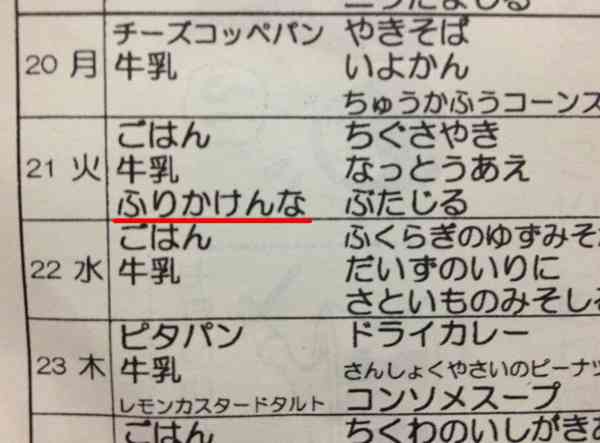 20 月 チーズコッペパン やきそば
牛乳 いよかん
ちゅうかふうコーンス
21 火 ごはん ちぐさやき
牛乳 なっとうあえ
ふりかけんな ぶたじる
22 水 ごはん ふくらぎのゆずみそ
牛乳 だいずのいりに
さといものみそし
23 木 ピタパン ドライカレー
牛乳 さんしょくやさいのピーナツ
レモンカスタードタルト コンソメスープ
ごはん ちくわのいしがき